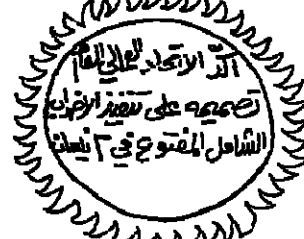 أكد الاتحاد العمالي العام
تصميمه على تنفيذ الاضراب
الشامل المفتوح في ٢ نيسان